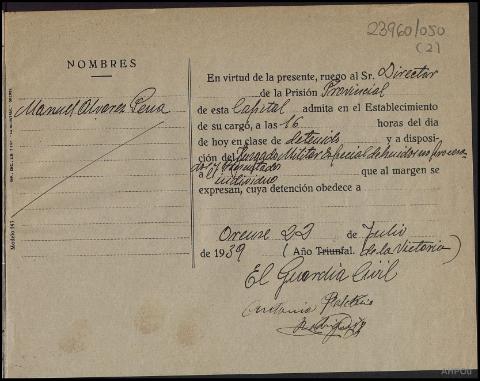 23960/050
(2)
NOMBRES
Manuel Alvarez Pena
En virtud de la presente, ruego al Sr. Director
de la Prisión Provincial
de esta Capital admita en el Establecimiento
de su cargó, a las 16 horas del día
de hoy en clase de detenido y a disposi-
ción del Juzgado Militar Especial de huidos no
a individuo que al margen se
expresan, cuya detención obedece a
Orense 22 de Julio
de 1939 (Año Triunfal. de la Victoria)
El Guardia Civil
Antonio
Modelo 147
AHPOu